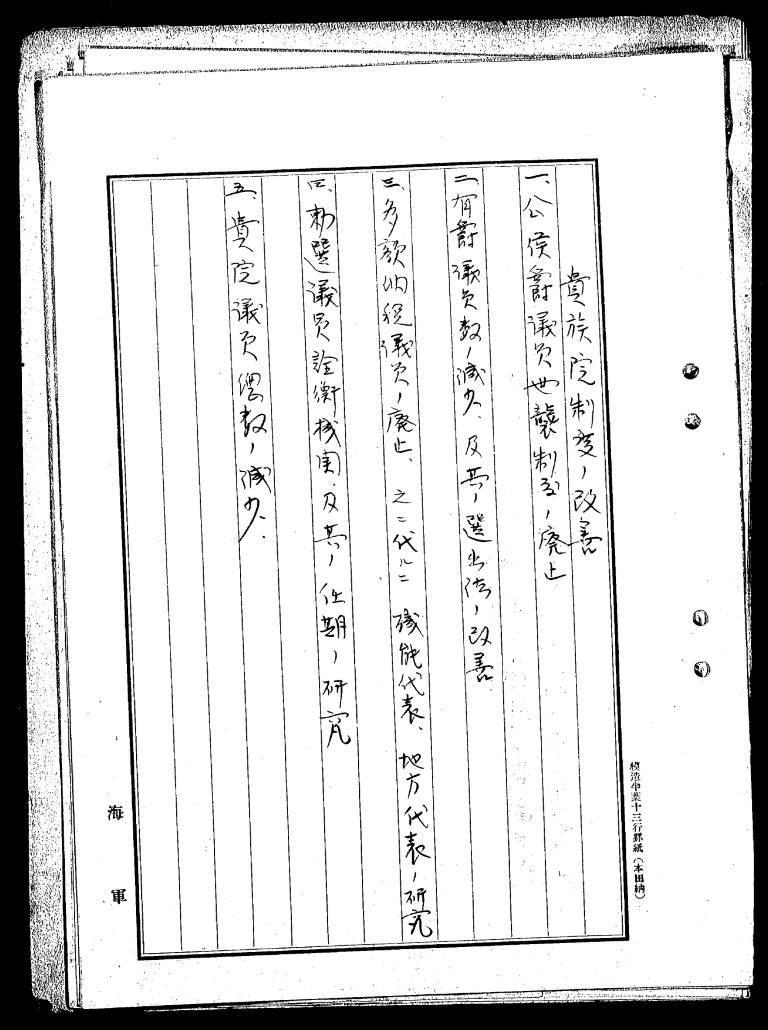 貴族院制度ノ改善
一、公侯爵議員世襲制度ノ廃止
二、有爵議員数ノ減少、及其ノ選出法ノ改善
三、多額納税議員ノ廃止、之ニ代ルニ 職能代表、地方代表ノ研究
四、勅選議員詮衡機関、及其ノ任期ノ研究
五、貴院議員総数ノ減少、
海軍
模造半葉十三行罫紙(本田納)